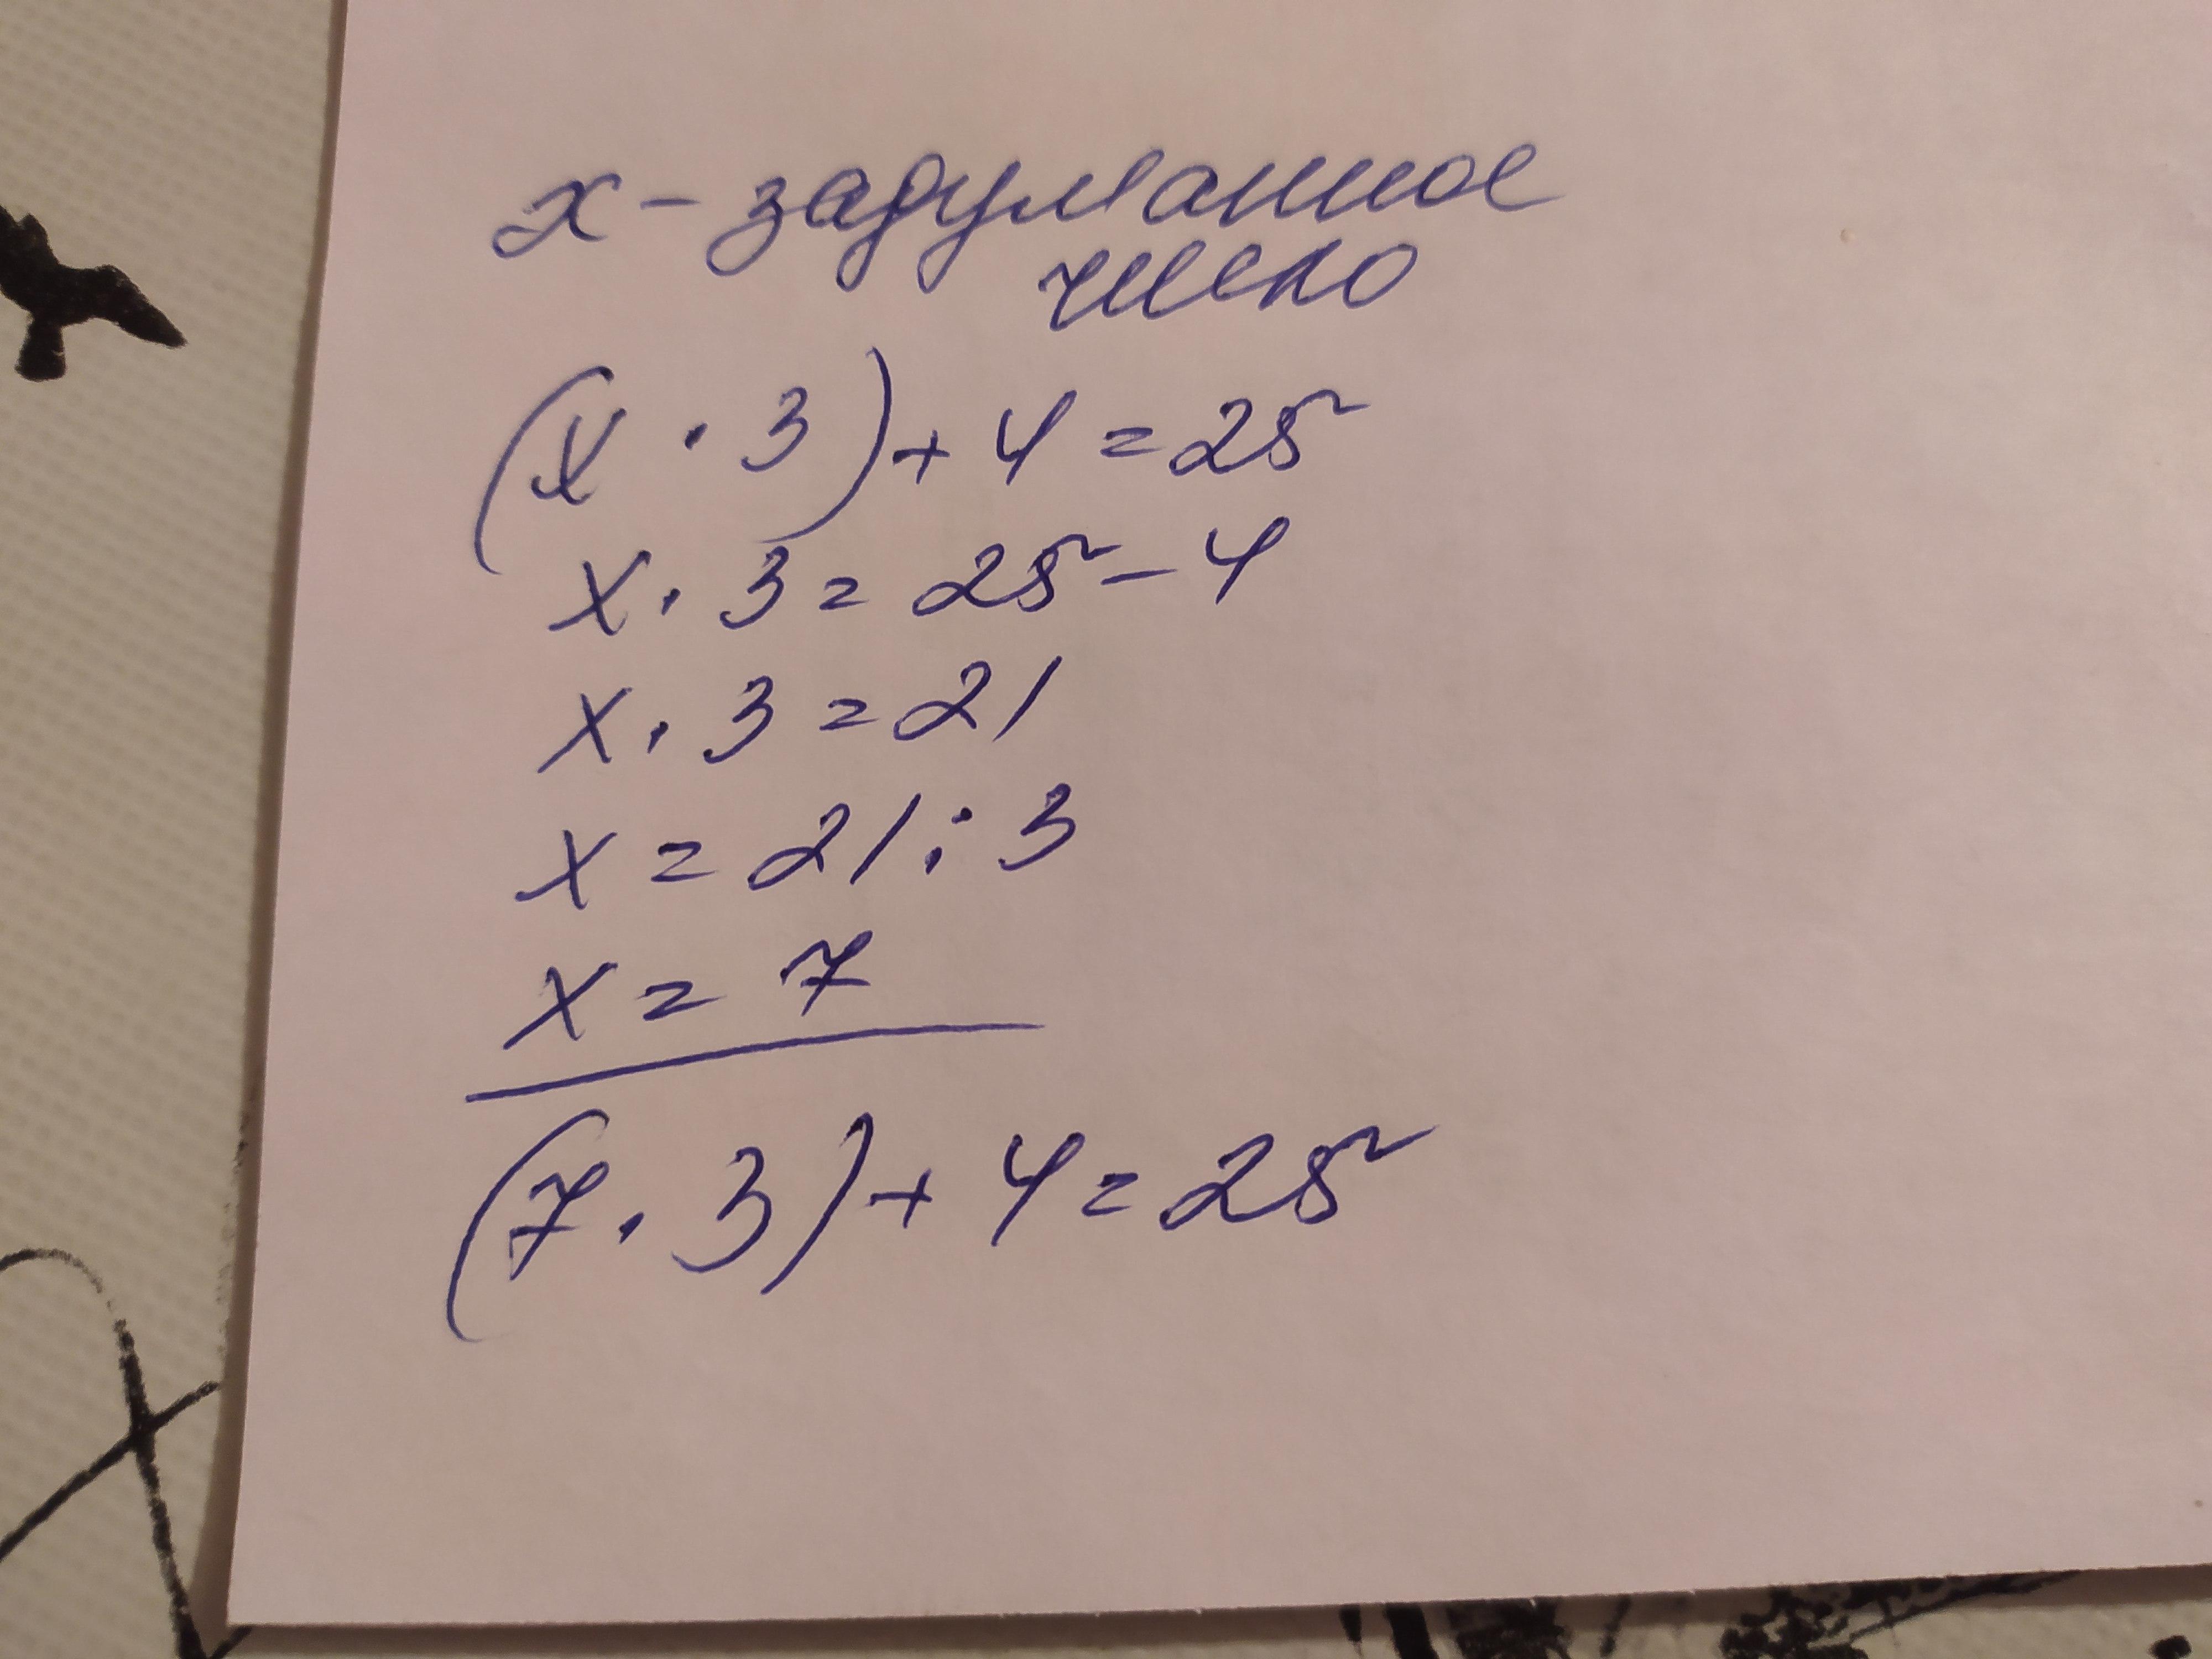 x - задуманное
число
(x · 3) + 4 = 25
x · 3 = 25 - 4
x · 3 = 21
x = 21 : 3
x = 7
(7 · 3) + 4 = 25